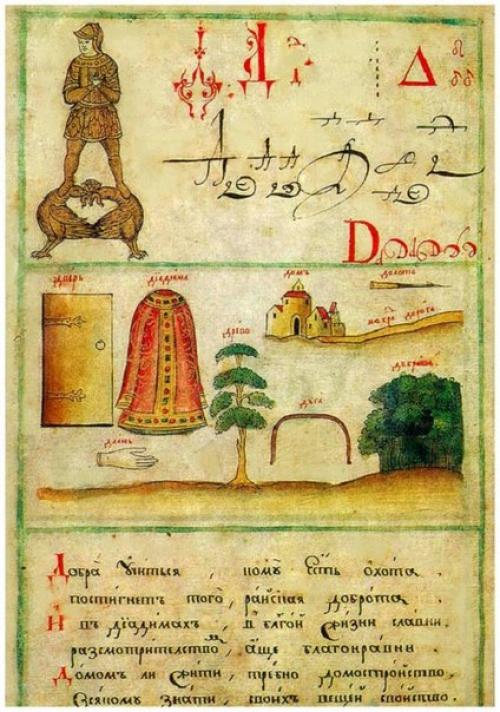 Д Д Δ
D
дверь діадима домъ долото
добра дорога
древо дуброва
дуга
длань
Добра учиться, кому есть охота.
постигнетъ того, райская доброта.
И въ діадимахъ, в благой жизни славни.
разсмотрителство, аще благонравни.
Домомъ ли жити, требно домостройство,
Всякому знати, своихъ вещей свойство.